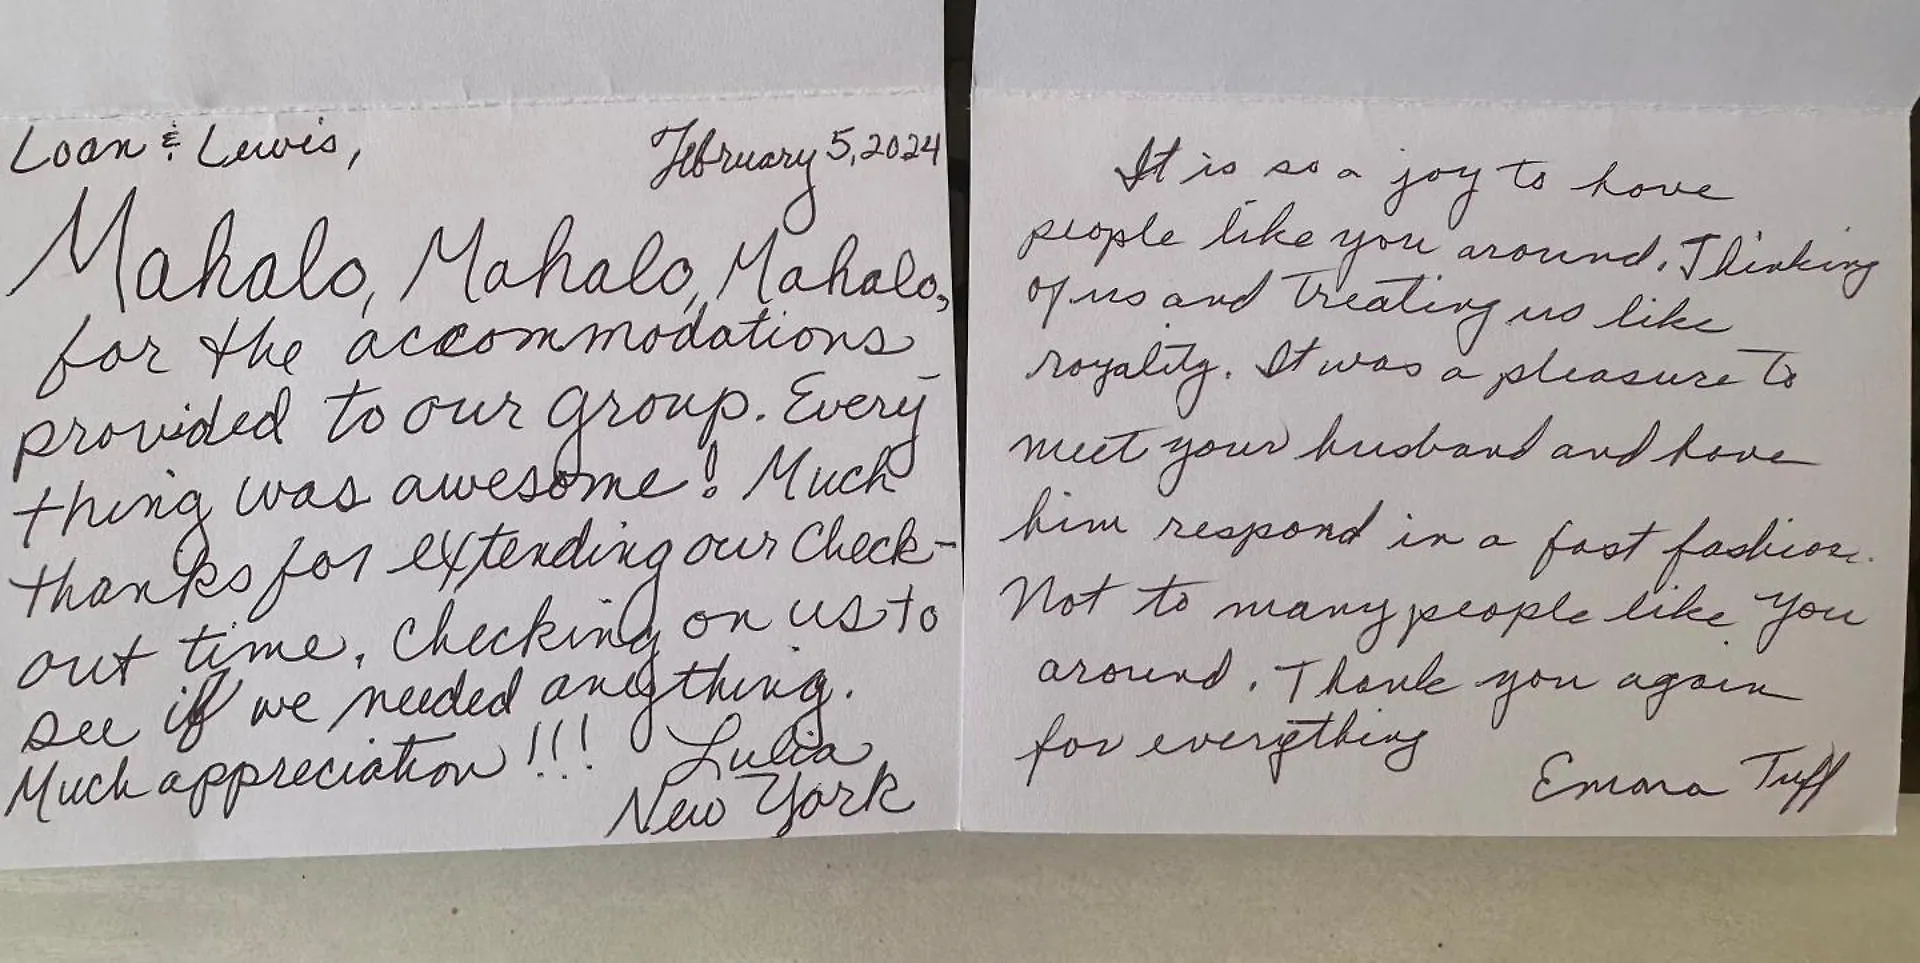 Loan & Lewis,
February 5, 2024
Mahalo, Mahalo, Mahalo,
for the accommodations
provided to our group. Every-
thing was awesome! Much
thanks for extending our check-
out time. Checking on us to
see if we needed anything.
Much appreciation!!!
Lulia
New York
It is so a joy to have
people like you around. Thinking
of us and treating us like
royality. It was a pleasure to
meet your husband and have
him respond in a fast fashion.
Not to many people like you
around. Thank you again
for everything
Emma Tuff